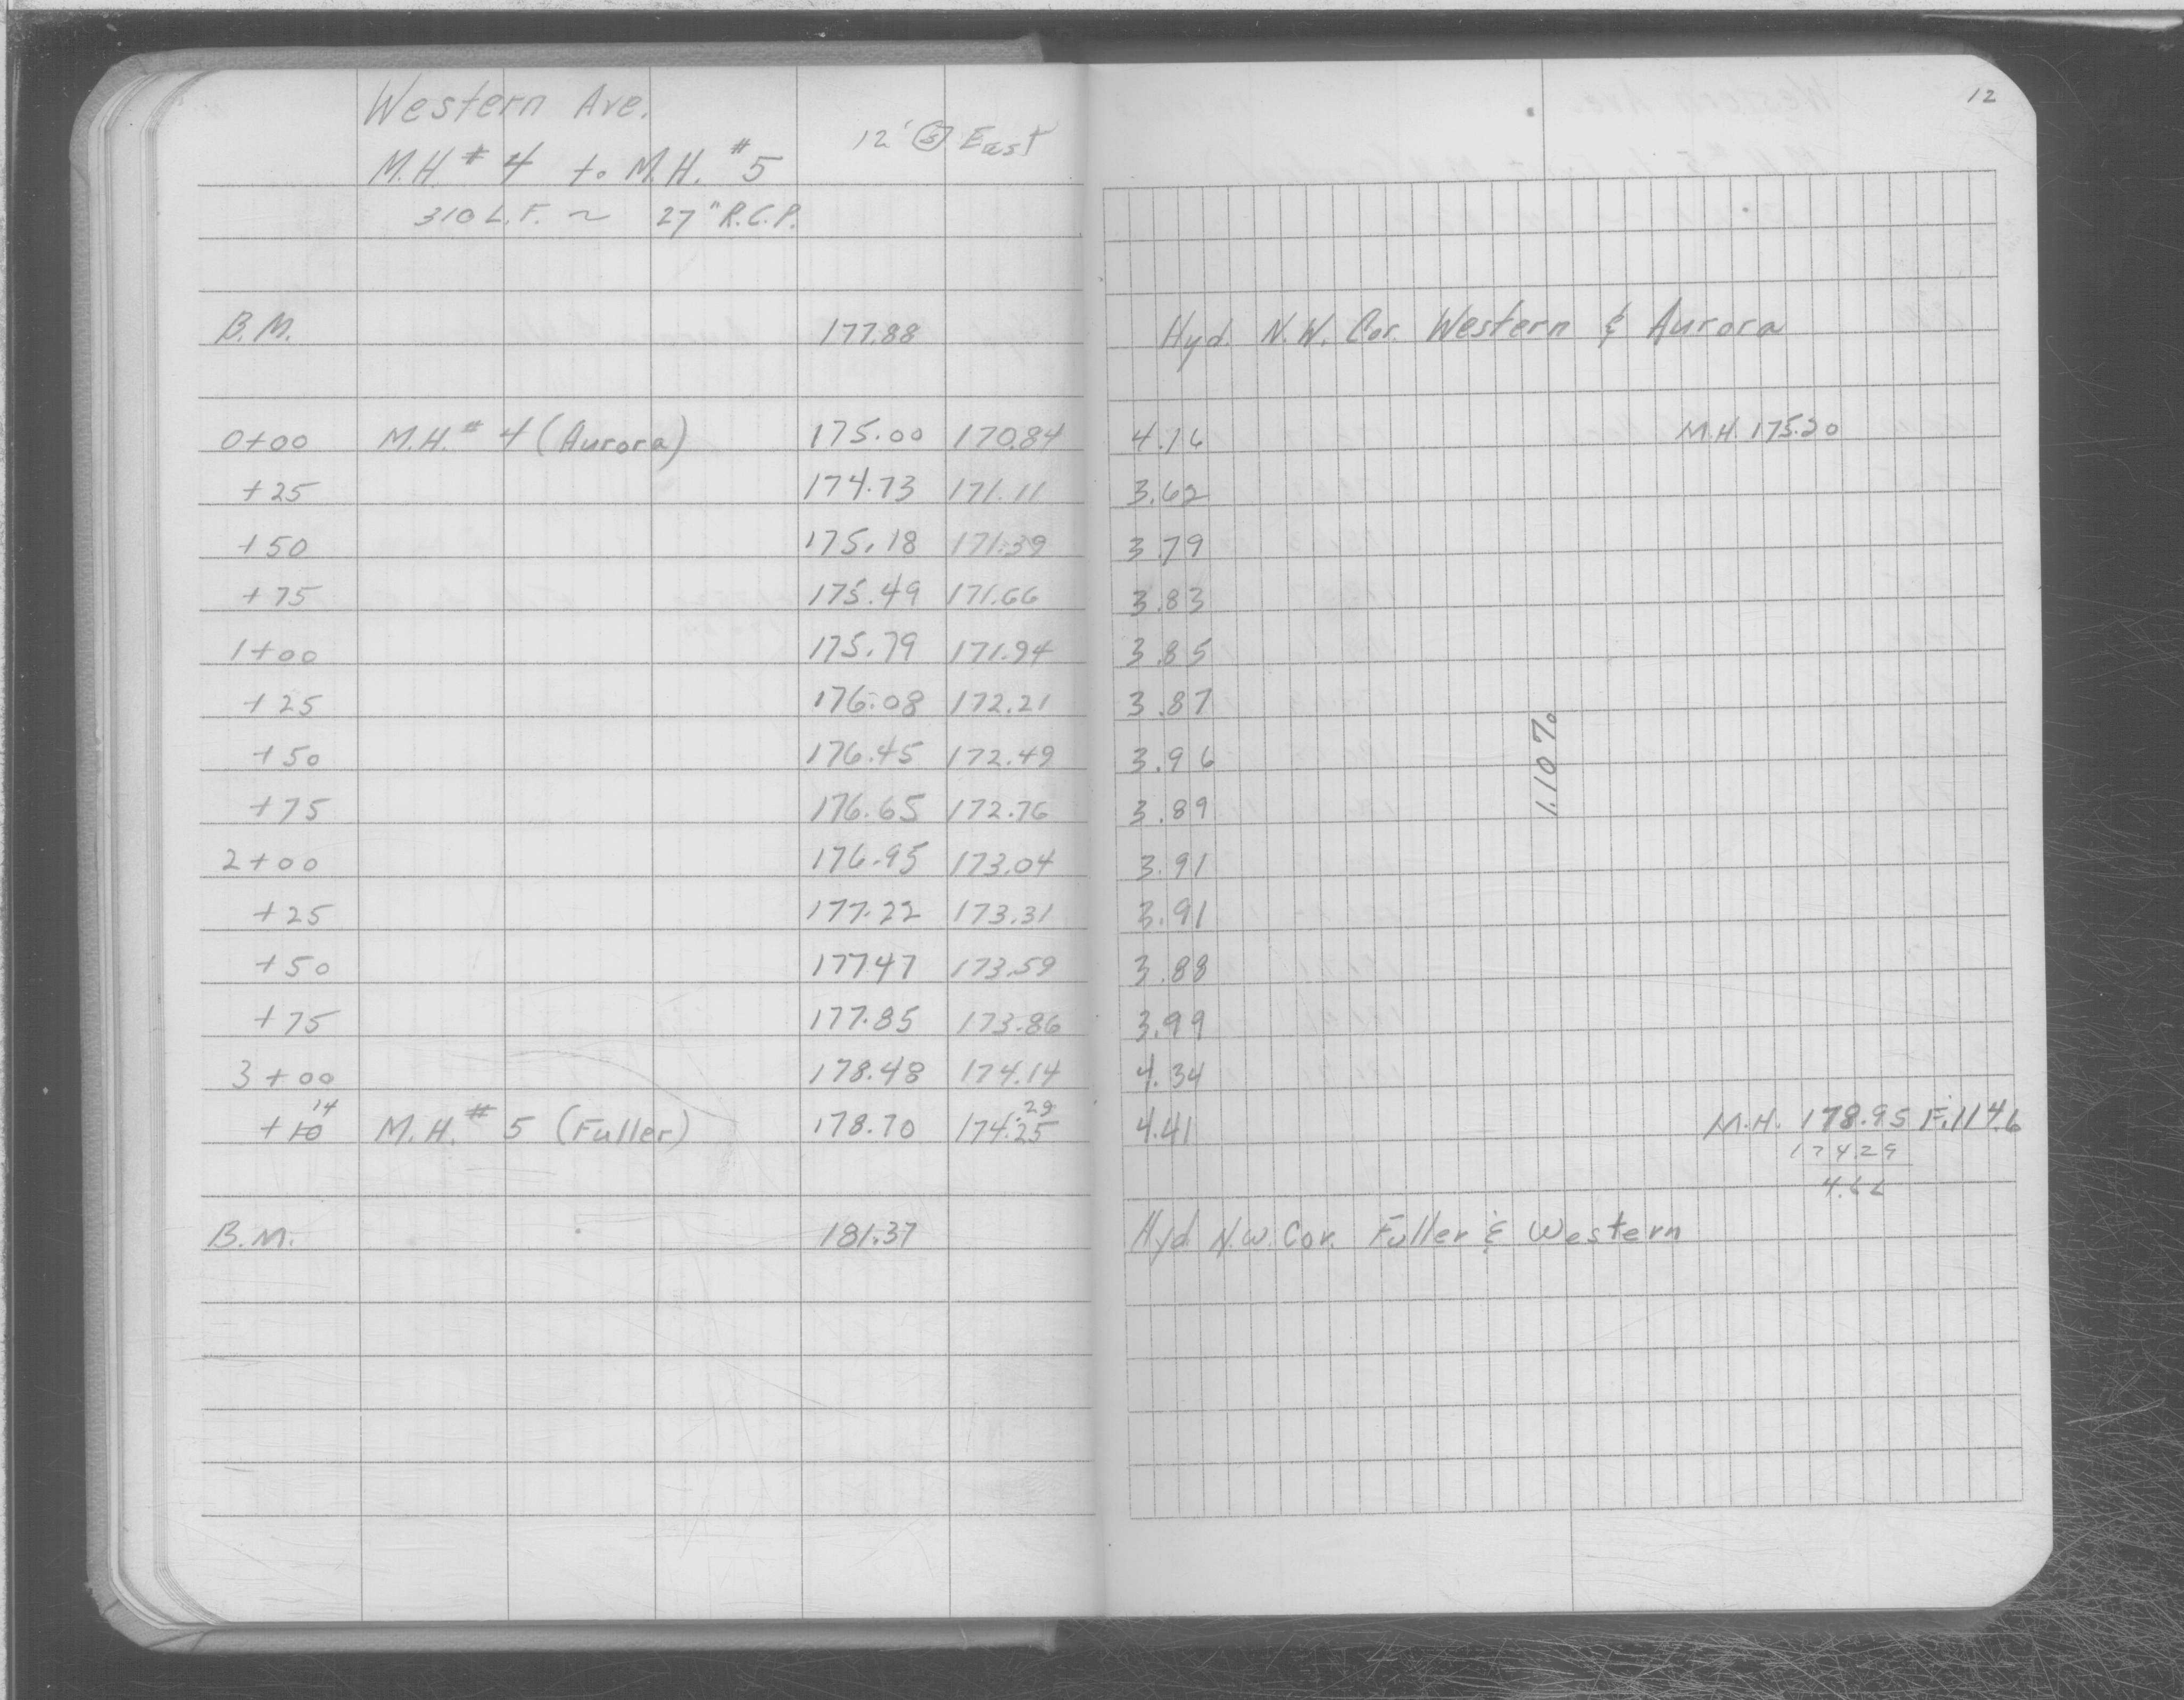 12
Western Ave.
12' Ⓢ East
M.H. # 4 to M.H. # 5
310 L.F. ~ 27" R.C.P.
B.M. 177.88 Hyd. N.W. Cor. Western & Aurora
0+00 M.H. # 4 (Aurora) 175.00 170.84 4.16 M.H. 175.20
+25 174.73 171.11 3.62
+50 175.18 171.39 3.79
+75 175.49 171.66 3.83
1+00 175.79 171.94 3.85
+25 176.08 172.21 3.87
+50 176.45 172.49 3.96
1.10%
+75 176.65 172.76 3.89
2+00 176.95 173.04 3.91
+25 177.22 173.31 3.91
+50 177.47 173.59 3.88
+75 177.85 173.86 3.99
3+00 178.48 174.14 4.34
14 .29
+10 M.H. # 5 (Fuller) 178.70 174.25 4.41 M.H. 178.95 F.114.6
174.29
4.66
B.M. 181.37 Hyd. N.W. Cor. Fuller & Western